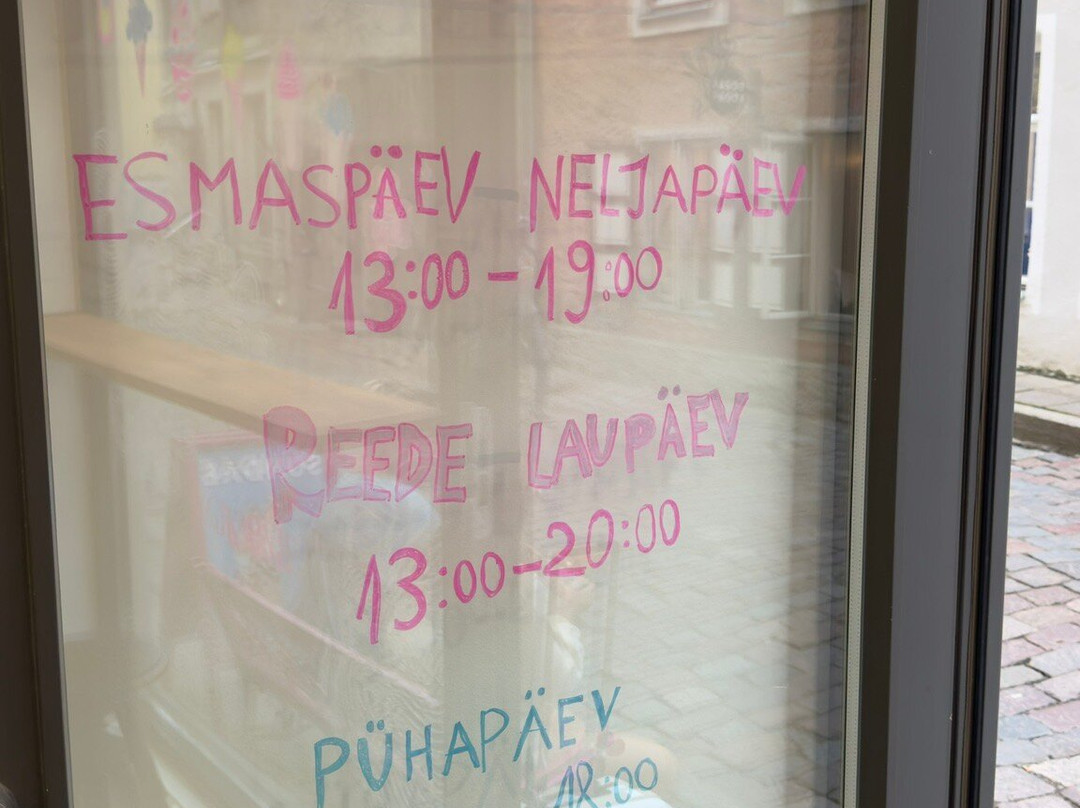 ESMASPÄEV NELJAPÄEV
13:00 - 19:00
REEDE LAUPÄEV
13:00-20:00
PÜHAPÄEV
18:00